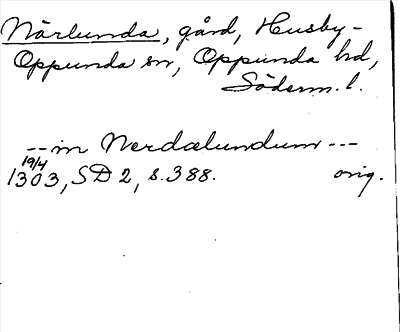 Närlunda, gård, Husby-
Oppunda sn, Oppunda hd,
Söderm. l.
--- in Nerdælundum ---
19/4
1303, SD 2, s. 388. orig.